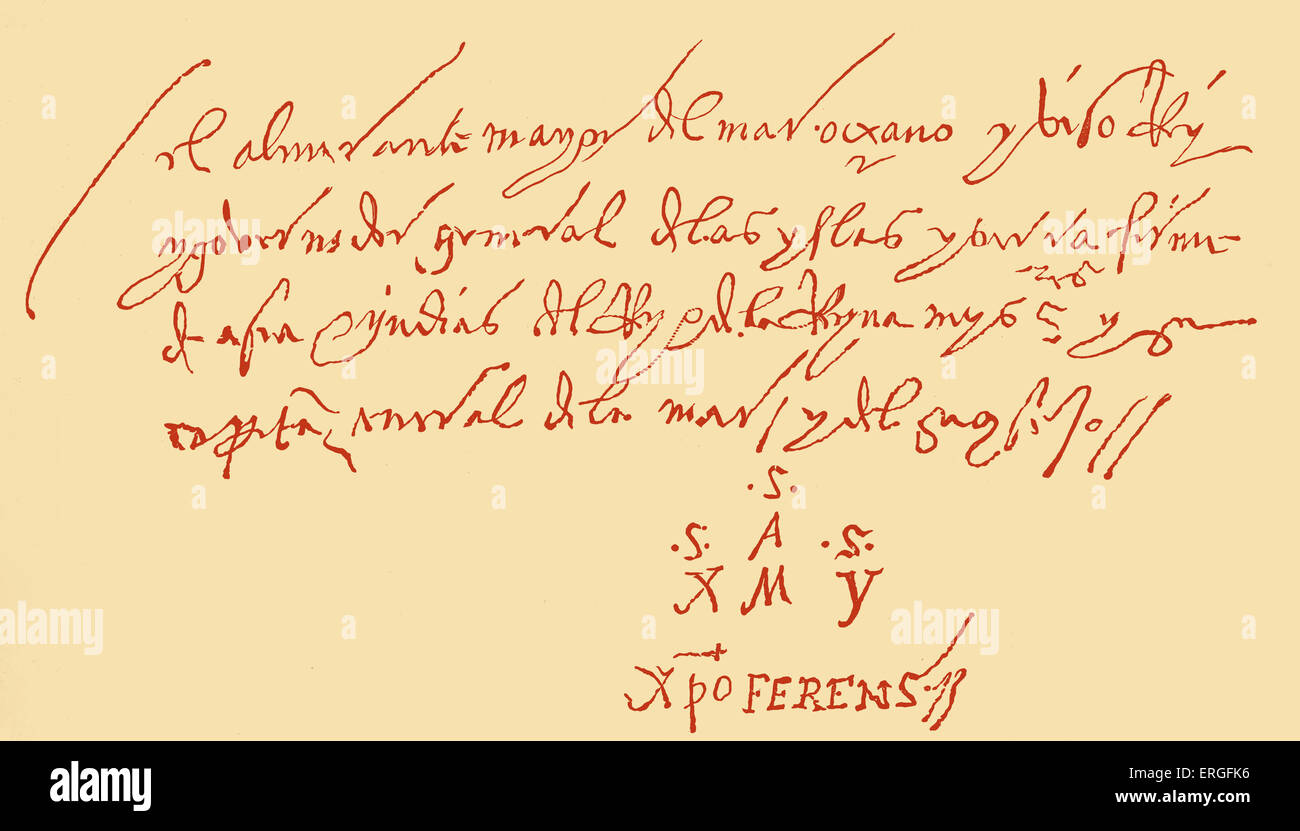 el almirante mayor del mar oceano y viso Rey
y governador general de las yslas y tierra firme
de asia e yndias del Rey e de la Reyna mys s.res y su
capitā general de la mar y del
.S.
.S. A .S.
X M Y
Xp̄o FERENS.//
alamy
a
Image ID: ERGFK6
www.alamy.com